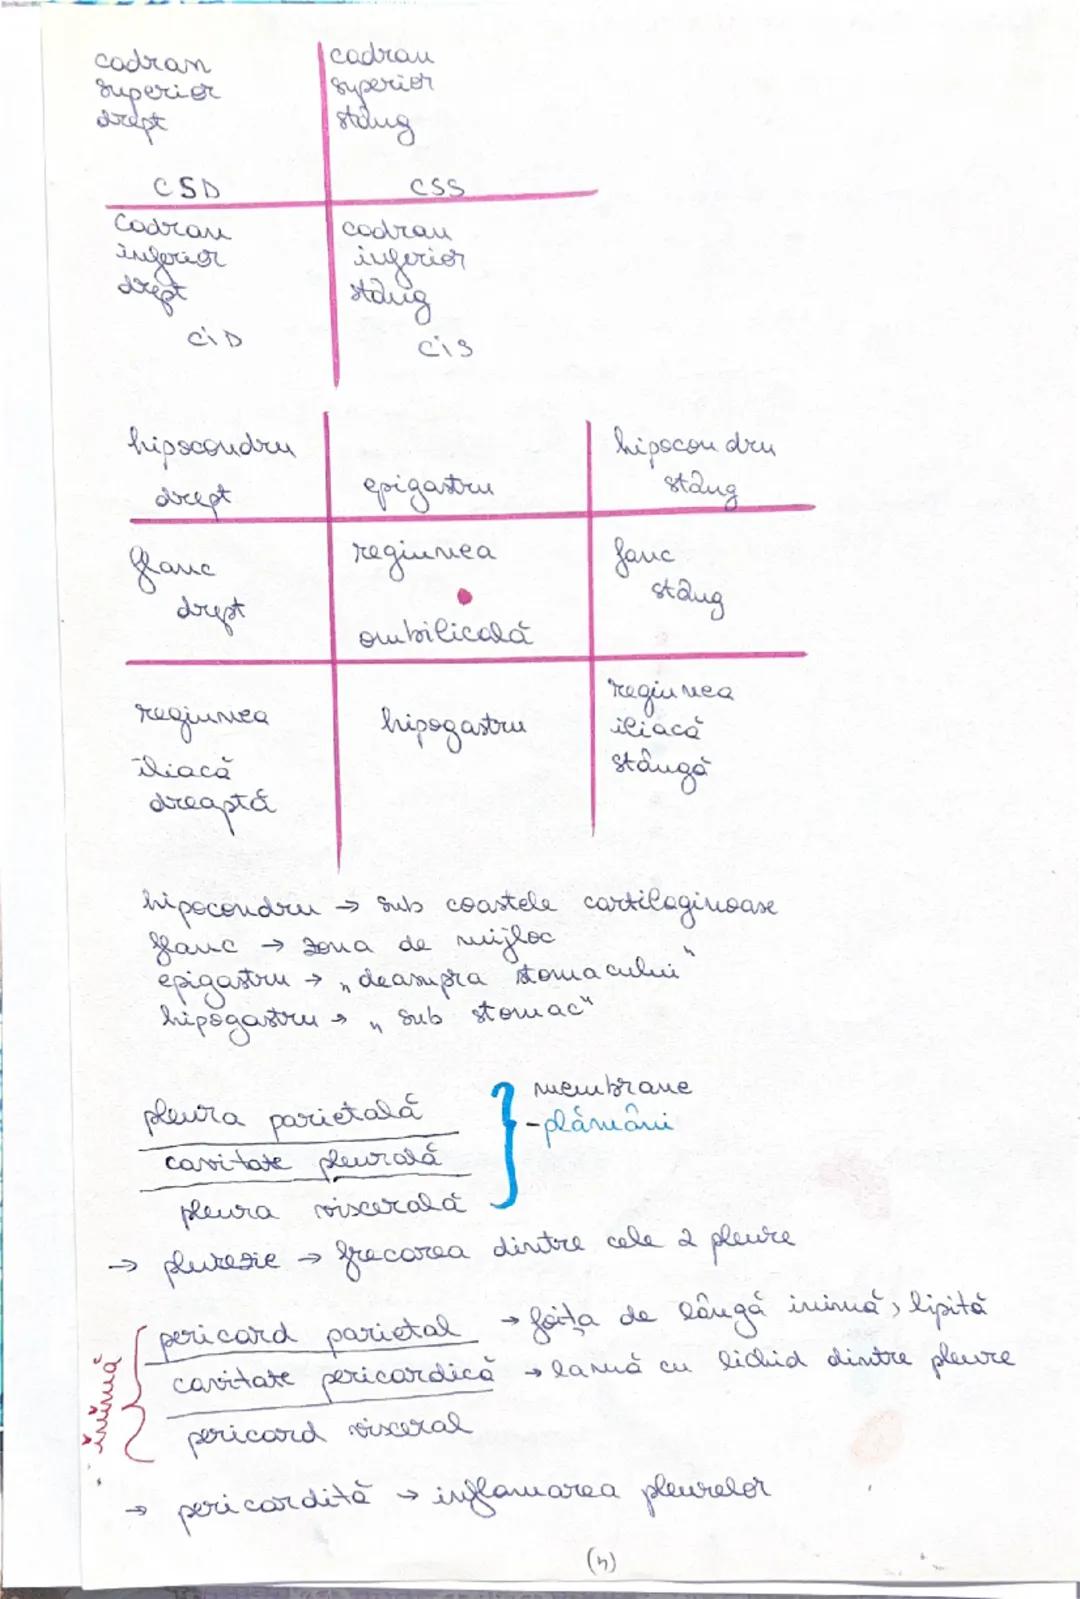 cadran
superior
drept
CSD
cadran
superior
stâng
CSS
Cadran
inferior
drept
CiD
cadran
inferior
stâng
CiS
hipocondru
drept
epigastru
hipocondru
stâng
flanc
drept
regiunea
ombilicală
fanc
stâng
regiunea
iliacă
dreaptă
hipogastru
regiunea
iliacă
stângă
hipocondru → sub coastele cartilaginoase
flanc → zona de mijloc
epigastru → „deasupra stomacului"
hipogastru → „sub stomac"
pleura parietală
cavitate pleurală
pleura viscerală
membrane
- plămâni
→ plurezie → frecarea dintre cele 2 pleure
inimă
pericard parietal → foița de lângă inimă, lipită
cavitate pericardică → lamă cu lichid dintre pleure
pericard visceral
→ pericardită → inflamarea pleurelor
(4)